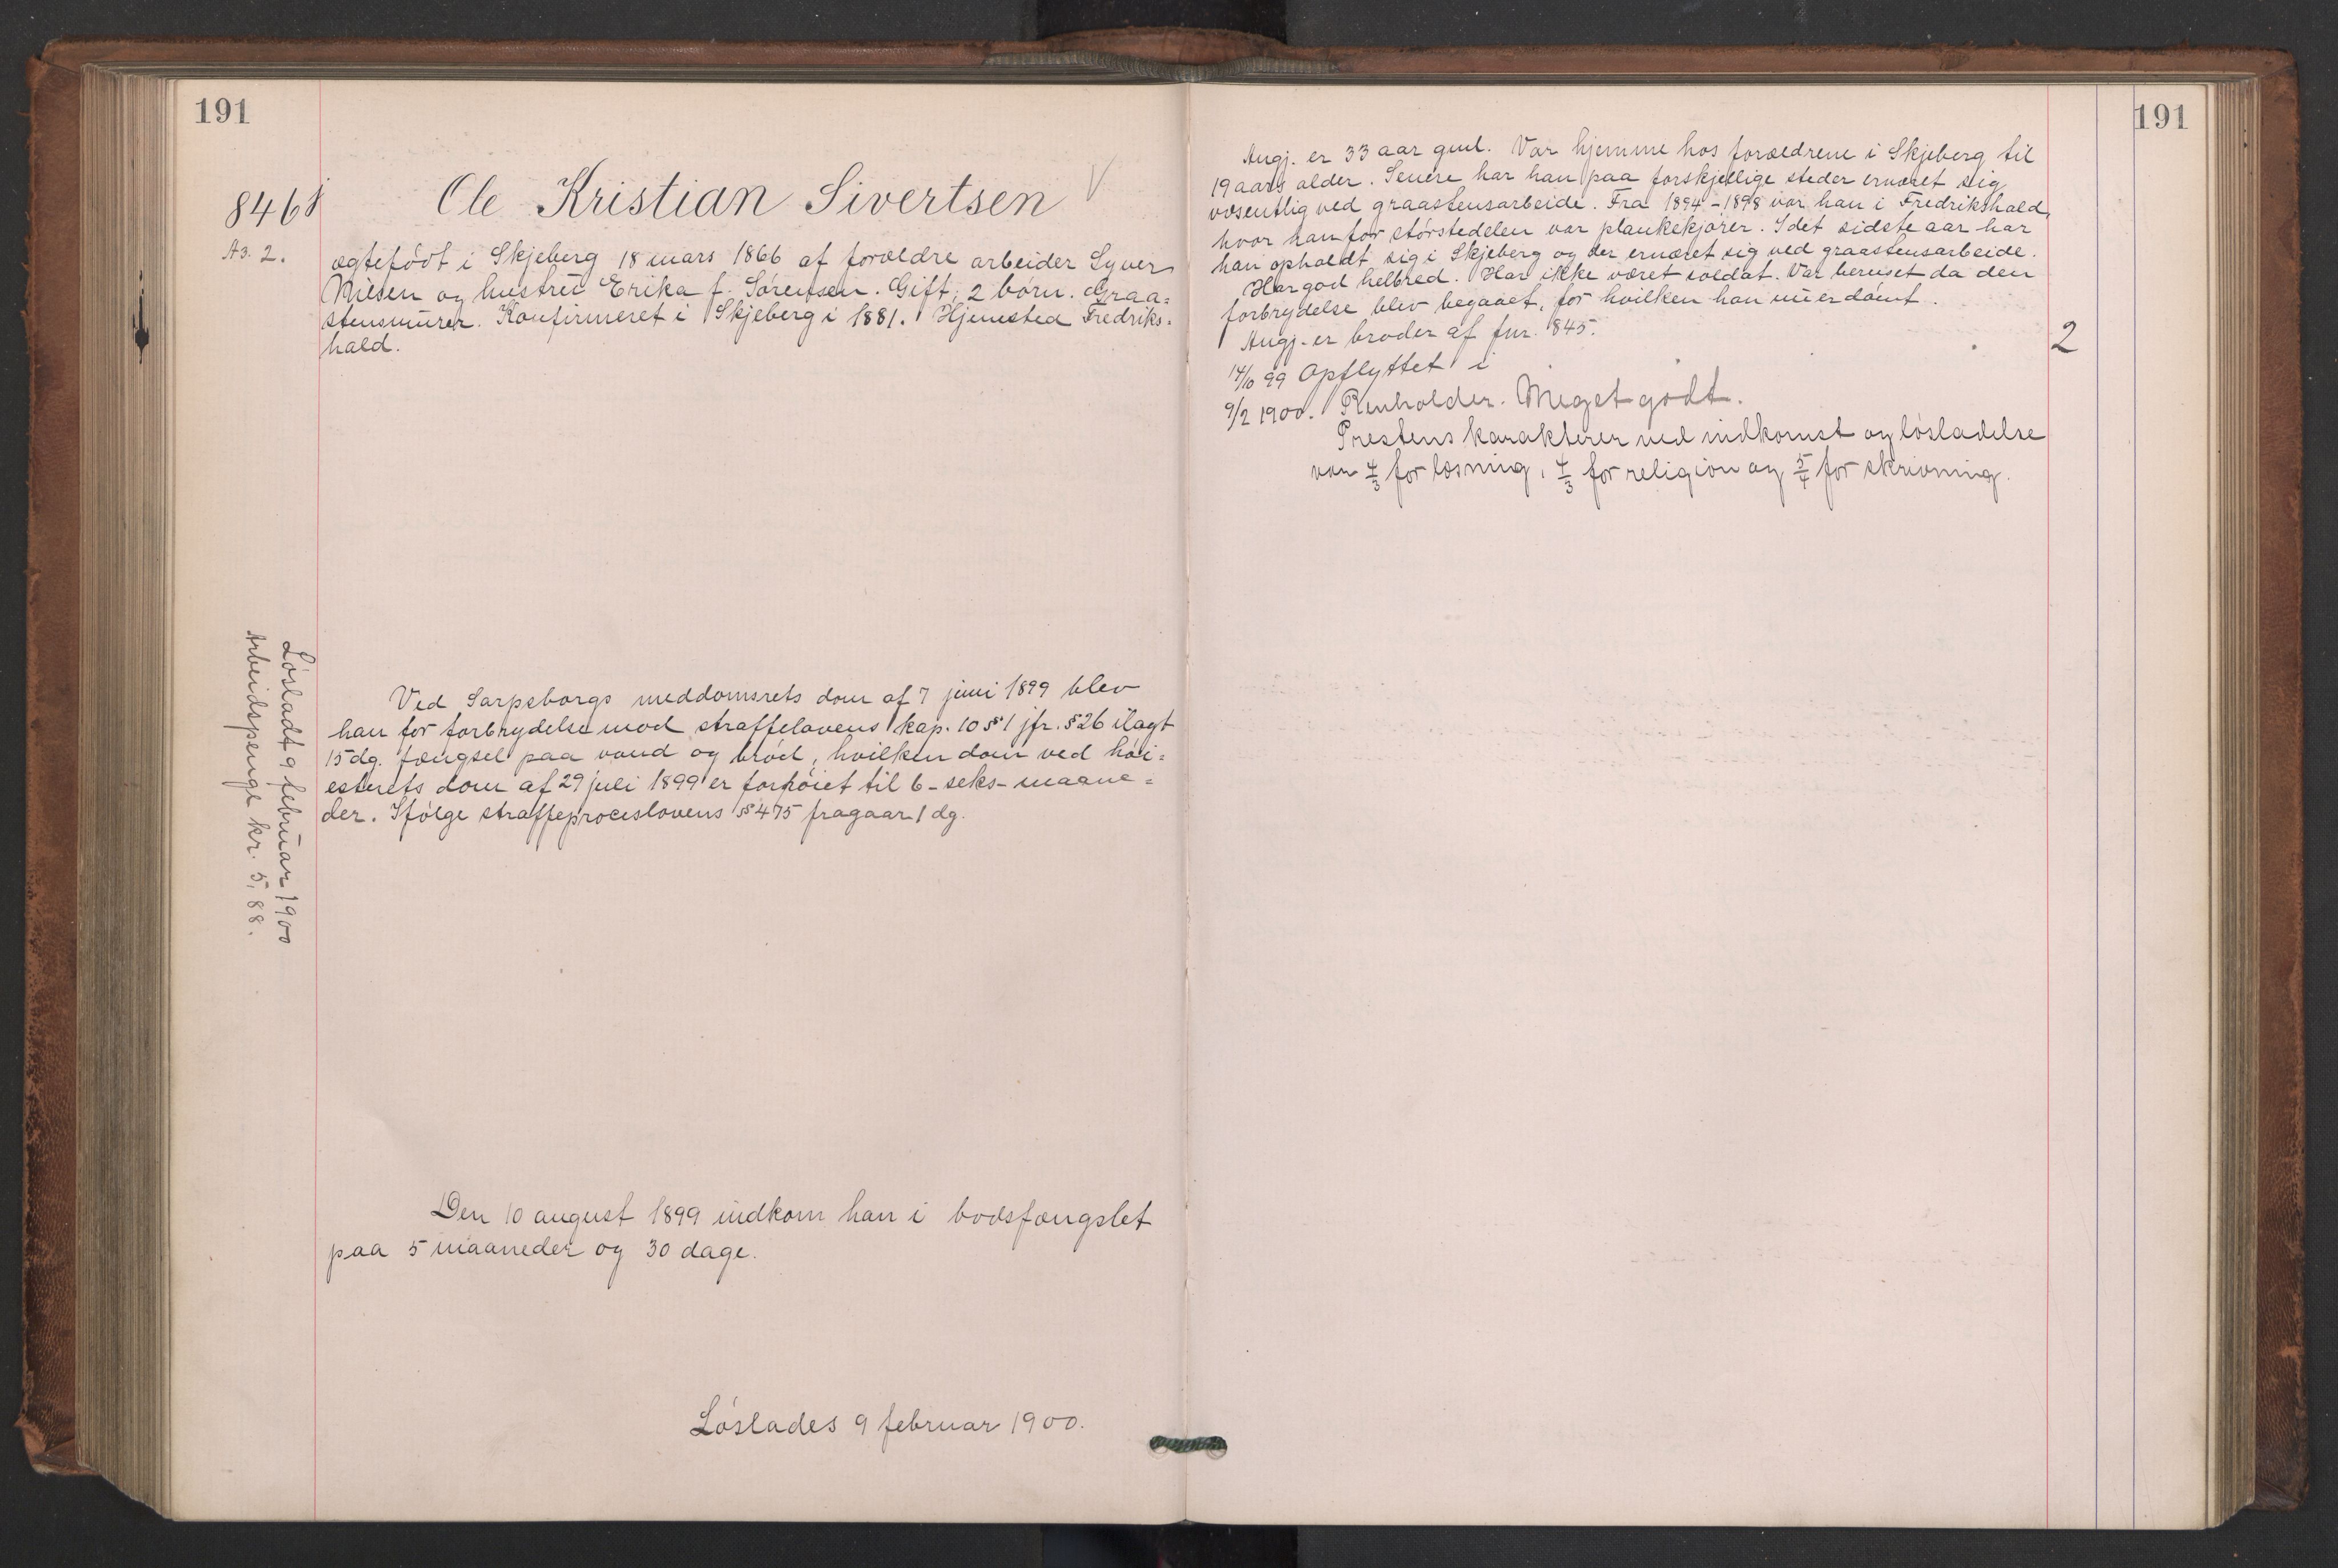 191
846
A3. 2.
Ole Kristian Sivertsen V
ægtefødt i Skjeberg 18 mars 1866 af forældre arbeider Syver
Nilsen og hustru Erika f. Sørensen. Gift; 2 børn. Graa=
stensmurer. Konfirmeret i Skjeberg i 1881. Hjemsted Fredriks=
hald.
Løsladt 9 februar 1900
Arbeidspenge kr. 5,88.
Ved Sarpsborgs meddomsrets dom af 7 juni 1899 blev
han for forbrydelse mod straffelovens kap. 10 § 1 jfr. § 26 ilagt
15 dg. fængsel paa vand og brød, hvilken dom ved høi=
esterets dom af 29 juli 1899 er forhøiet til 6 - seks - maane=
der. Ifølge straffeproceslovens § 475 fragaar 1 dg.
Den 10 august 1899 indkom han i bodsfængslet
paa 5 maaneder og 30 dage.
Løslades 9 februar 1900.
191
Angj. er 33 aar gml. Var hjemme hos forældrene i Skjeberg til
19 aars alder. Senere har han paa forskjellige steder ernæret sig
væsentlig ved graastensarbeide. Fra 1894 - 1898 var han i Fredrikshald,
hvor han for størstedelen var plankekjører. I det sidste aar har
han opholdt sig i Skjeberg og der ernæret sig ved graastensarbeide.
Har god helbred. Har ikke været soldat. Var beruset da den
forbrydelse blev begaaet, for hvilken han nu er dømt.
Angj. er broder af fnr. 845.
2
14/10 99 Opflyttet i
9/2 1900. Renholder. Meget godt.
Prestens karakterer ved indkomst og løsladelse
var 4/3 for læsning, 4/3 for religion og 5/4 for skrivning.